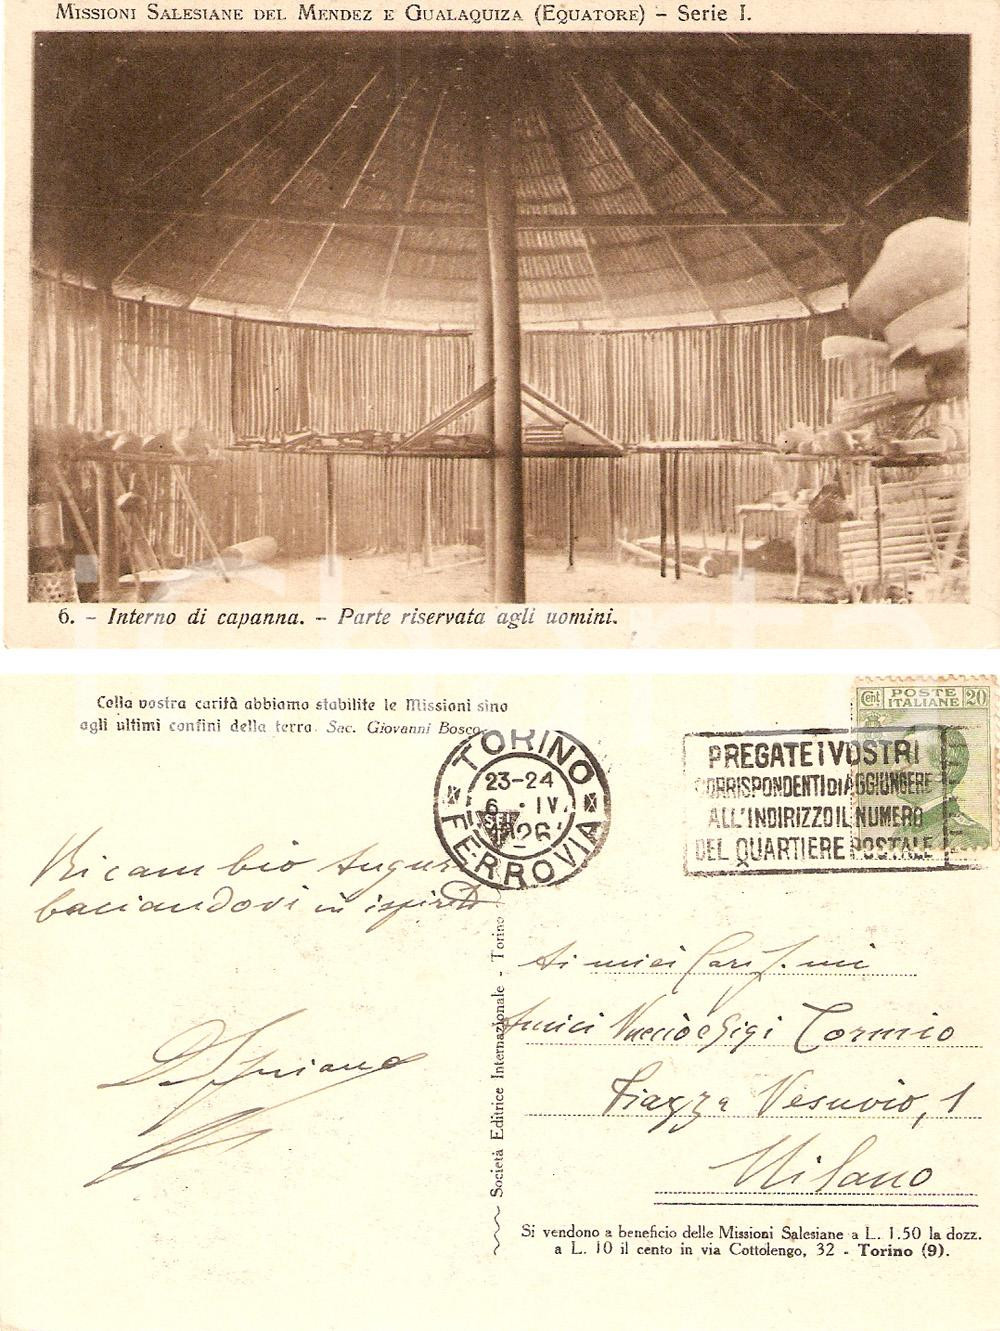 Missioni Salesiane del Mendez e Gualaquiza (Equatore) – Serie I.
6. – Interno di capanna. – Parte riservata agli uomini.
Colla vostra carità abbiamo stabilite le Missioni sino
agli ultimi confini della terra. Sac. Giovanni Bosco.
TORINO
23-24
6 . IV.
26
FERROVIA
PREGATE I VOSTRI
CORRISPONDENTI DI AGGIUNGERE
ALL'INDIRIZZO IL NUMERO
DEL QUARTIERE POSTALE
Cent POSTE ITALIANE 20
Ricambio Auguri
baciandovi in
Ai miei
Amici e Gigi Cormio
Piazza Vesuvio, 1
Milano
Società Editrice Internazionale - Torino
Si vendono a beneficio delle Missioni Salesiane a L. 1.50 la dozz.
a L. 10 il cento in via Cottolengo, 32 - Torino (9).